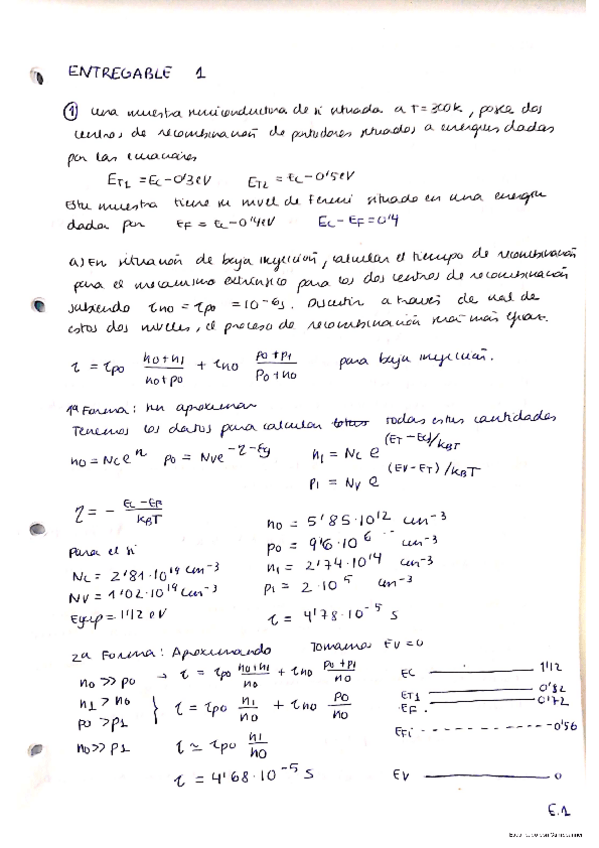 ENTREGABLE 1
① Una muestra semiconductora de si situada a T=300k, posee dos
centros de recombinación de portadores situados a energías dadas
por las ecuaciones
ET1 = Ec-0'3eV ET2 = Ec-0'5eV
Esta muestra tiene su nivel de Fermi situado en una energía
dada por EF = Ec-0'4eV Ec-EF=0'4
a) En situación de baja inyección, calcular el tiempo de recombinación
para el mecanismo extrínseco para los dos centros de recombinación
sabiendo τno = τpo = 10^-6 s. Discutir a través de cual de
estos dos niveles, el proceso de recombinación será más eficaz.
τ = τpo (no+n1)/(no+po) + τno (po+p1)/(po+no) para baja inyección.
1ª Forma: sin aproximar
Tenemos los datos para calcular todas estas cantidades
no = Nc e^η po = Nv e^(-η-εg) n1 = Nc e^((ET-Ec)/kBT)
p1 = Nv e^((EV-ET)/kBT)
η = - (Ec-EF)/(kBT)
no = 5'85·10^12 cm^-3
Para el si po = 9'6·10^6 cm^-3
Nc = 2'81·10^19 cm^-3 n1 = 2'74·10^14 cm^-3
Nv = 1'02·10^19 cm^-3 p1 = 2·10^5 cm^-3
Egap = 1'12 eV τ = 4'78·10^-5 s
2ª Forma: Aproximando Tomamos EV=0
no >> po → τ = τpo (no+n1)/no + τno (po+p1)/no EC 1'12
n1 > no } τ = τpo n1/no + τno po/no ET1 0'82
po > p1 EF 0'72
no >> p1 τ ≃ τpo n1/no EFi 0'56
τ = 4'68·10^-5 s EV 0
E.1